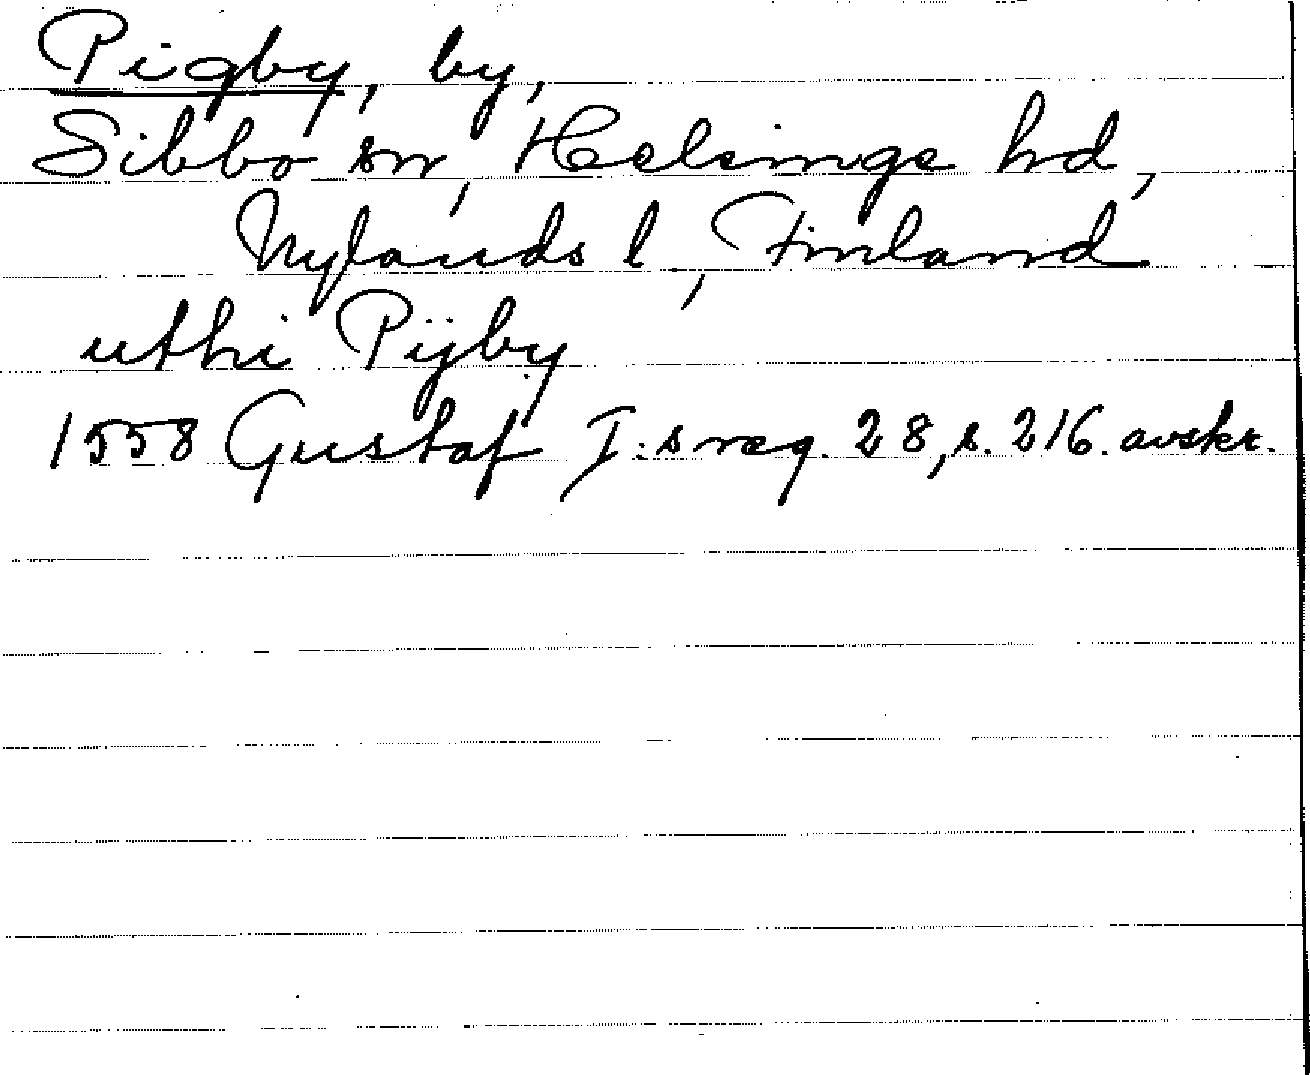 Pigby, by,
Sibbo sn, Helsinge hd,
Nylands l, Finland
uthi Pijby
1558 Gustaf I:s reg. 28, s. 216. avskr.